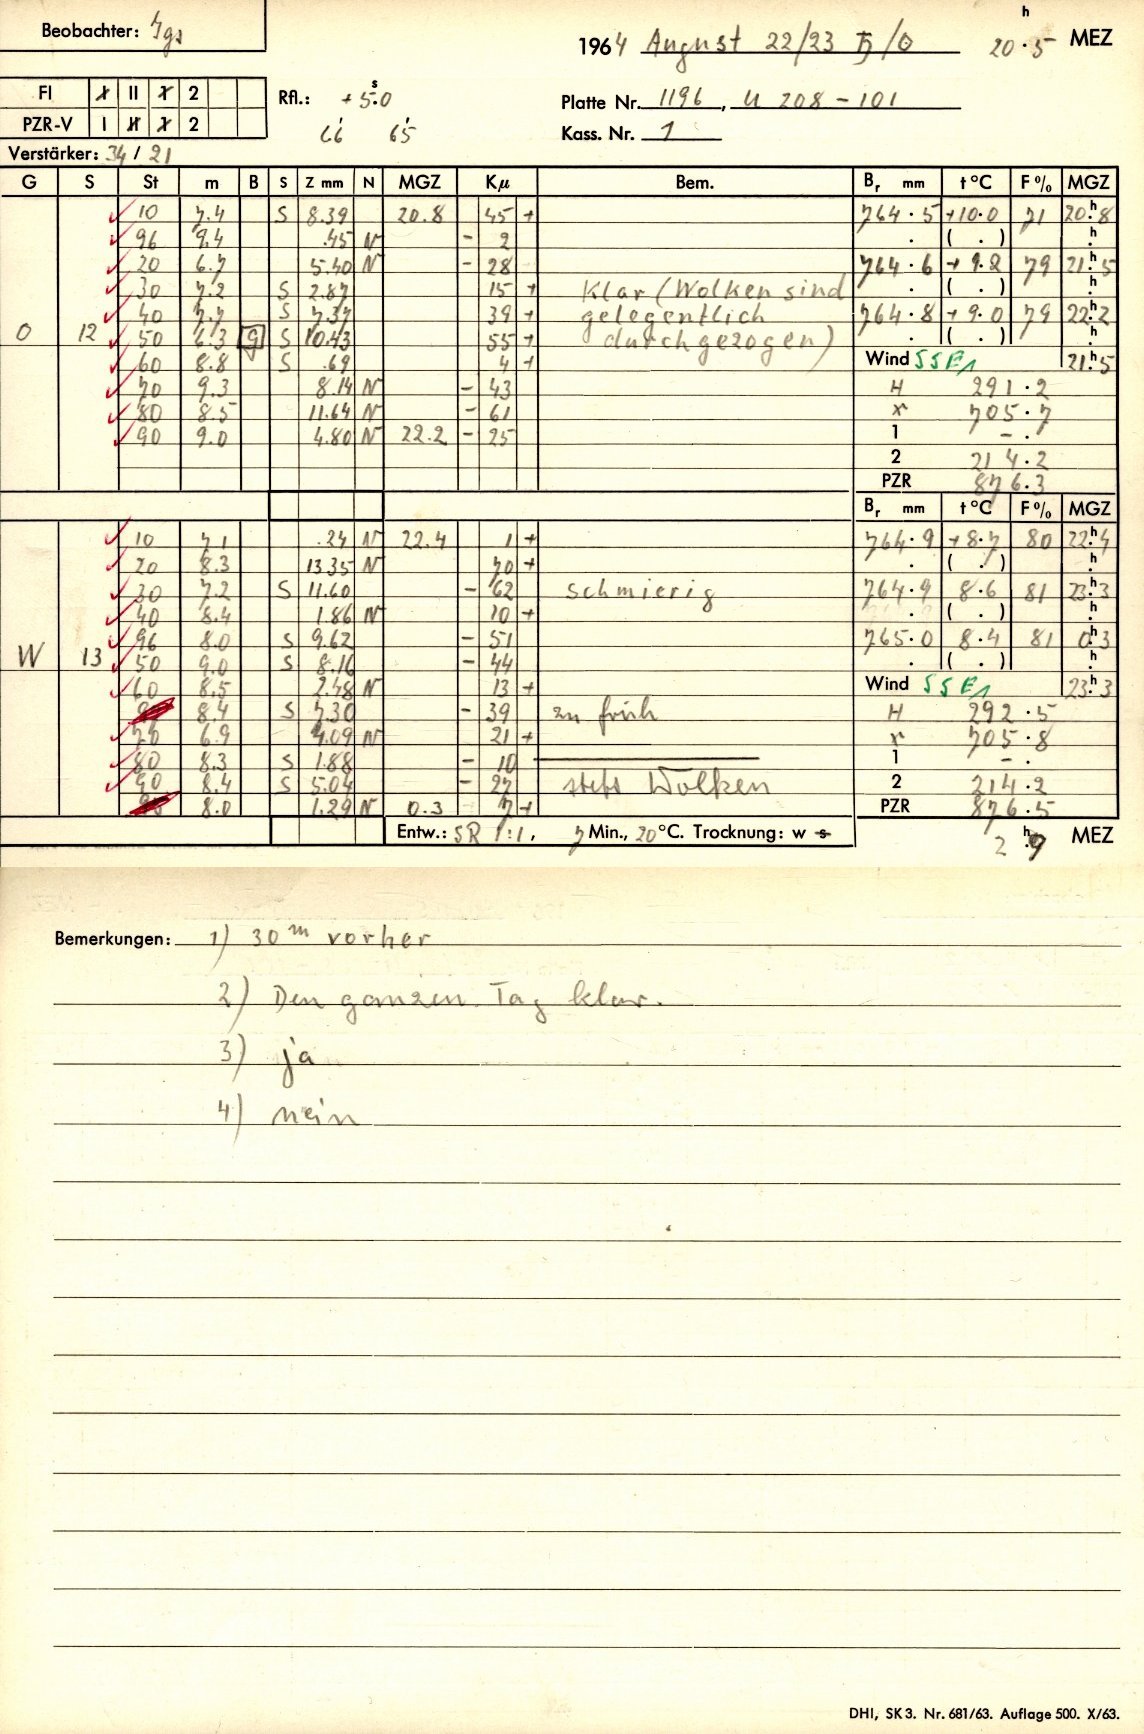 Beobachter: Ygs
1964 August 22/23 ♄/☉ 20 h . 5 MEZ
FI I II X 2
PZR-V I II X 2
Rfl.: + 5 s . 0
66 65
Platte Nr. 1196, U 208 - 101
Kass. Nr. 1
Verstärker: 34 / 21
G S St m B S Z mm N MGZ Kμ Bem. Br mm t °C F % MGZ
10 7.4 S 8.39 20.8 45 + 764.5 +10.0 71 20 h . 8
96 9.4 .45 N - 2 . ( . ) h .
20 6.7 5.40 N - 28 764.6 + 9.2 79 21 h . 5
30 7.2 S 2.87 15 + Klar (Wolken sind . ( . ) h .
40 7.7 S 7.37 39 + gelegentlich 764.8 + 9.0 79 22 h . 2
O 12 50 6.3 9 S 10.43 55 + durchgezogen) . ( . ) h .
60 8.8 S .69 4 + Wind SSE1 21 h . 5
70 9.3 8.14 N - 43 H 291.2
80 8.5 11.64 N - 61 x 705.7
90 9.0 4.80 N 22.2 - 25 1 - .
2 214.2
PZR 876.3
Br mm t °C F % MGZ
10 7.1 .24 N 22.4 1 + 764.9 + 8.7 80 22 h . 4
20 8.3 13.35 N 70 + . ( . ) h .
30 7.2 S 11.60 - 62 schmierig 764.9 8.6 81 23 h . 3
40 8.4 1.86 N 10 + . ( . ) h .
96 8.0 S 9.62 - 51 765.0 8.4 81 0 h . 3
W 13 50 9.0 S 8.16 - 44 . ( . ) h .
60 8.5 2.48 N 13 + Wind SSE1 23 h . 3
8.4 S 7.30 - 39 zu früh H 292.5
70 6.9 4.09 N 21 + x 705.8
80 8.3 S 1.88 - 10 1 - .
90 8.4 S 5.04 - 27 stets Wolken 2 214.2
8.0 1.29 N 0.3 7 + PZR 876.5
Entw.: SR 1:1, 7 Min., 20 °C. Trocknung: w s 2 h . 9 MEZ
Bemerkungen: 1) 30 m vorher
2) Den ganzen Tag klar.
3) ja
4) nein
DHI, SK 3. Nr. 681/63. Auflage 500. X/63.